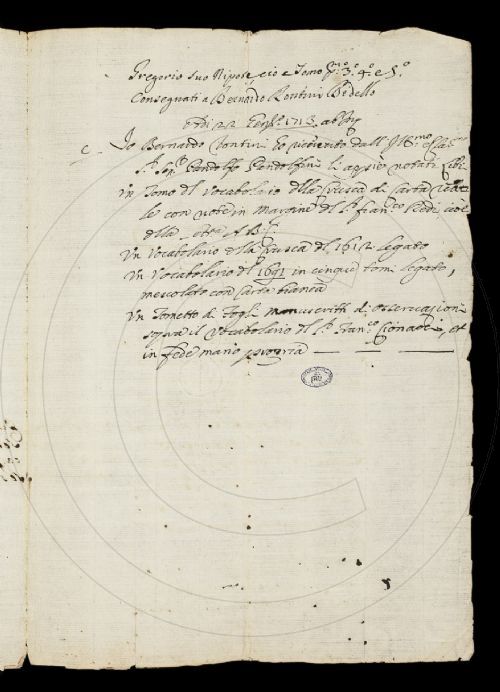 Gregorio suo Nipote, cioè Tomo p.mo 3.o 4.o e 5.o
Consegnati a Bernardo Rontini Bidello
Adì 22 1713. ab
Io Bernardo Rontini ho ricevuto dall Ill.mo e
S.r Gandolfo Gandolfini li appiè notati libri
un Tomo del Vocabolario della Crusca di carta reale
con note in margine del S.r Fran.co Redi, cioè
della A B C
un Vocabolario della Crusca del 1612 legato
un Vocabolario del 1691 in cinque tomi legato,
mescolato con carta bianca
un Tometto di fogli manuscritti di osservazioni
sopra il Vocabolario del S.r Fran.co Cionacci, et
in fede mano propria